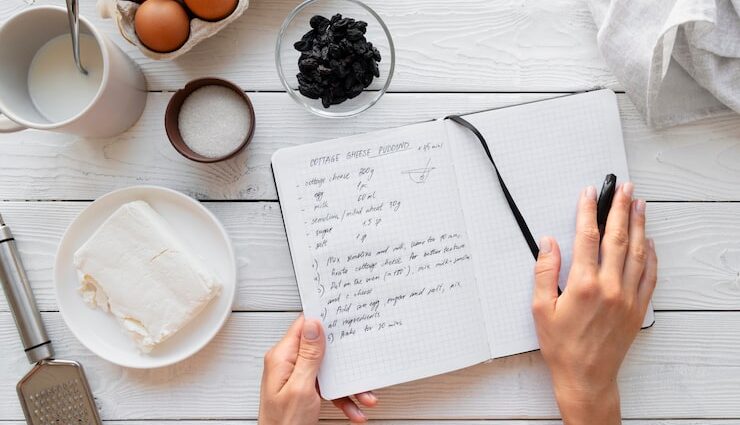 COTTAGE CHEESE PUDDING
+45 min
- cottage cheese 300g
- egg 1pc
- milk 60ml
- semolina / mild wheat 30g
- sugar 1,5
- salt
1) Mix semolina and milk, leave for 10 min.
cottage cheese for better texture
2) Put on the oven (at 180), mix milk-semolina
and c cheese
3) Add egg, sugar and salt, mix
all ingredients
5) Bake for 30 mins